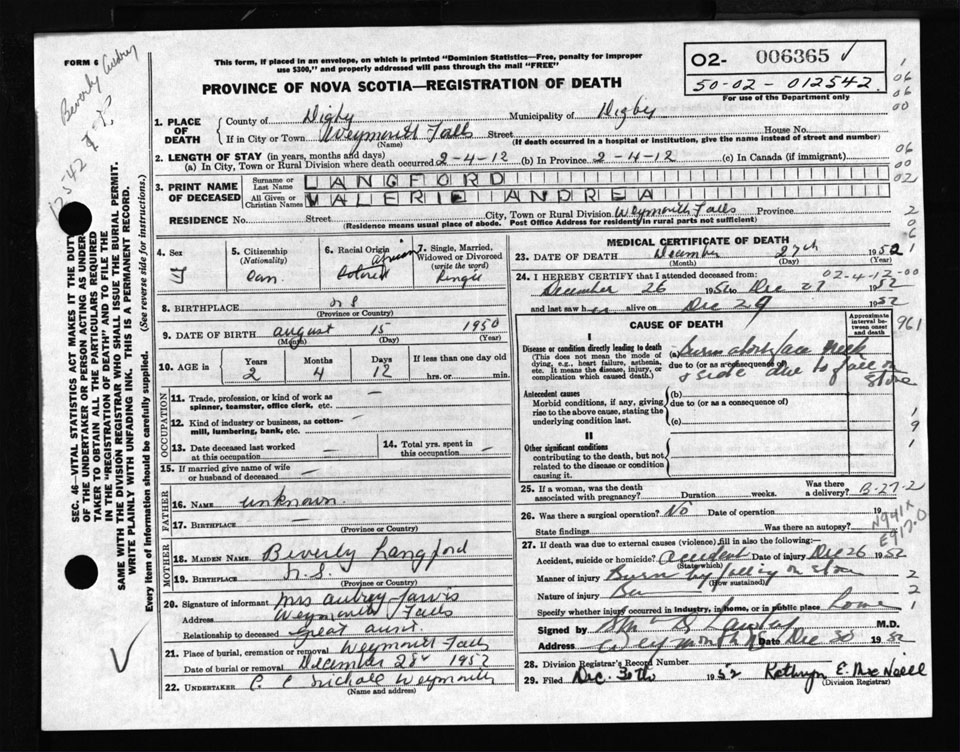 FORM 6
This form, if placed in an envelope, on which is printed "Dominion Statistics—Free, penalty for improper
use $300," and properly addressed will pass through the mail "FREE"
PROVINCE OF NOVA SCOTIA—REGISTRATION OF DEATH
O2- 006365 ✓
50-02-012542
For use of the Department only
Beverly Audrey
12542
SEC. 46—VITAL STATISTICS ACT MAKES IT THE DUTY
OF THE UNDERTAKER OR PERSON ACTING AS UNDER-
TAKER TO OBTAIN ALL THE PARTICULARS REQUIRED
IN THE "REGISTRATION OF DEATH" AND TO FILE THE
SAME WITH THE DIVISION REGISTRAR WHO SHALL ISSUE THE BURIAL PERMIT.
WRITE PLAINLY WITH UNFADING INK. THIS IS A PERMANENT RECORD.
Every item of information should be carefully supplied. (See reverse side for instructions.)
1. PLACE OF DEATH
County of Digby Municipality of Digby
If in City or Town Weymouth Falls Street House No.
(Name) (If death occurred in a hospital or institution, give the name instead of street and number)
2. LENGTH OF STAY (in years, months and days)
(a) In City, Town or Rural Division where death occurred 2-4-12 (b) In Province 2-4-12 (c) In Canada (if immigrant)
3. PRINT NAME OF DECEASED
Surname or Last Name LANGFORD
All Given or Christian Names VALERIE ANDREA
RESIDENCE No. Street City, Town or Rural Division Weymouth Falls Province
(Residence means usual place of abode. Post Office Address for residents in rural parts not sufficient)
4. Sex F
5. Citizenship (Nationality) Can.
6. Racial Origin African Colored
7. Single, Married, Widowed or Divorced (write the word) Single
8. BIRTHPLACE N S
(Province or Country)
9. DATE OF BIRTH August 15 1950
(Month) (Day) (Year)
10. AGE in Years 2 Months 4 Days 12 If less than one day old hrs. or min.
OCCUPATION
11. Trade, profession, or kind of work as
spinner, teamster, office clerk, etc. —
12. Kind of industry or business, as cotton-
mill, lumbering, bank, etc. —
13. Date deceased last worked
at this occupation —
14. Total yrs. spent in
this occupation —
15. If married give name of wife
or husband of deceased —
FATHER
16. NAME unknown
17. BIRTHPLACE —
(Province or Country)
MOTHER
18. MAIDEN NAME Beverly Langford
19. BIRTHPLACE N.S.
(Province or Country)
20. Signature of informant Mrs Aubrey Jarvis
Address Weymouth Falls
Relationship to deceased great aunt
21. Place of burial, cremation or removal Weymouth Falls
Date of burial or removal December 28 1952
22. UNDERTAKER Weymouth
(Name and address)
MEDICAL CERTIFICATE OF DEATH
23. DATE OF DEATH December 27th 1952
(Month) (Day) (Year)
02-4-12-00
24. I HEREBY CERTIFY that I attended deceased from:
December 26 1952 to Dec 27 1952
and last saw h alive on Dec 29 1952
CAUSE OF DEATH
Approximate interval between onset and death
I
Disease or condition directly leading to death
(This does not mean the mode of
dying, e.g., heart failure, asthenia,
etc. It means the disease, injury, or
complication which caused death.)
(a) Burn about face neck
due to (or as a consequence of)
& side due to fall on stove
Antecedent causes
Morbid conditions, if any, giving
rise to the above cause, stating the
underlying condition last.
(b)
due to (or as a consequence of)
(c)
II
Other significant conditions
contributing to the death, but not
related to the disease or condition
causing it.
25. If a woman, was the death
associated with pregnancy? Duration weeks. Was there a delivery? B-27-2
26. Was there a surgical operation? No Date of operation 19
State findings Was there an autopsy?
N941X
E917.0
27. If death was due to external causes (violence) fill in also the following:—
Accident, suicide or homicide? accident Date of injury Dec 26 1952
(State which)
Manner of injury Burn by falling on stove
(How sustained)
Nature of injury Burn
Specify whether injury occurred in industry, in home, or in public place home
Signed by M.D.
Address Weymouth NS Date Dec 30 1952
28. Division Registrar's Record Number
29. Filed Dec. 30th 1952 Kathryn E. MacNeill
(Division Registrar)
1
06
06
00
06
00
02
2
6
1
961
1
9
1
2
2
1